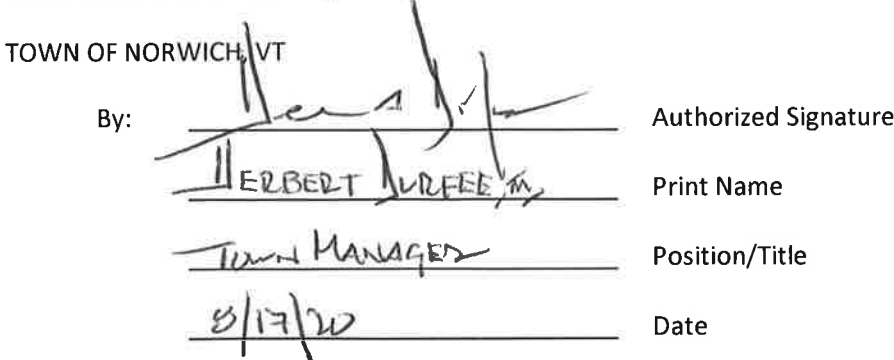 TOWN OF NORWICH, VT
By: Authorized Signature
HERBERT DURFEE, III, Print Name
TOWN MANAGER Position/Title
8/17/20 Date